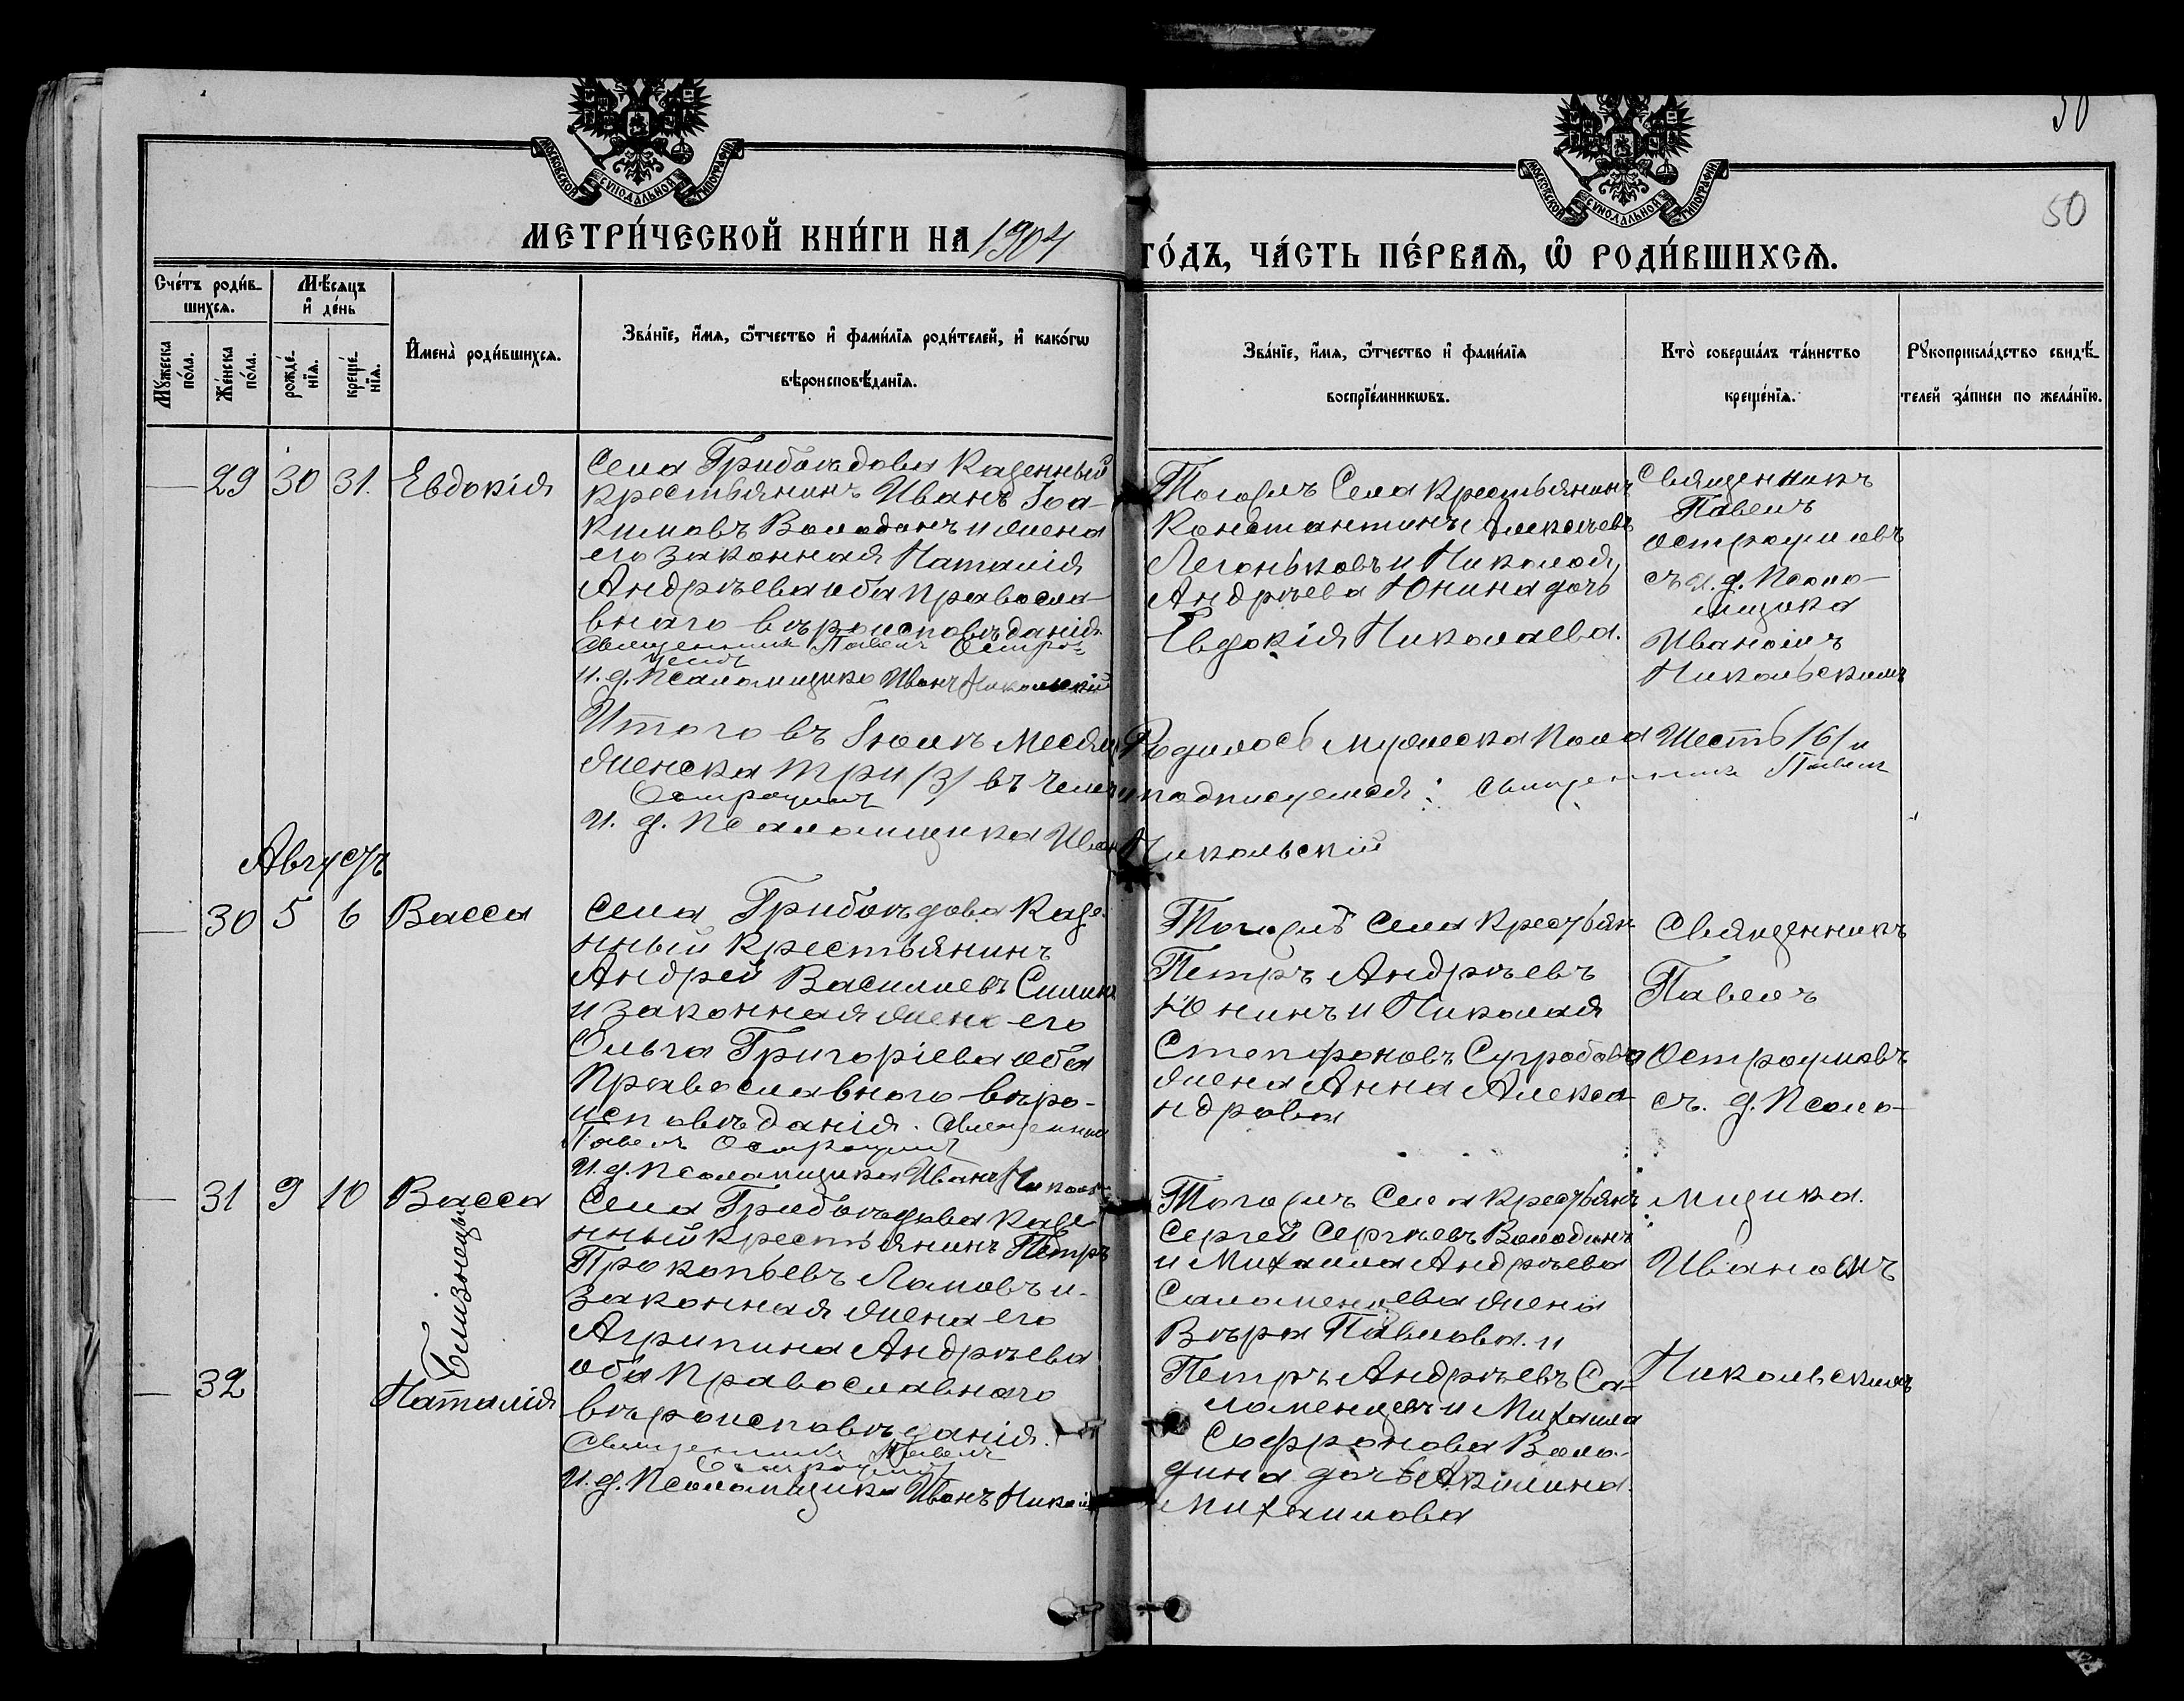 50
50
МОСКОВСКОЙ СѴНОДАЛЬНОЙ ТИПОГРАФІИ
МОСКОВСКОЙ СѴНОДАЛЬНОЙ ТИПОГРАФІИ
МЕТРИ́ЧЕСКОЙ КНИ́ГИ НА 1904
ГО́ДЪ, ЧА́СТЬ ПЕ́РВАѦ, Ѡ҆ РОДИ́ВШИХСѦ.
Сче́тъ роди́в-
шихсѧ.
Мѣ́сѧцъ
и҆ де́нь
Мꙋ́жеска
по́ла.
Же́нска
по́ла.
рожде́-
нїѧ.
креще́-
нїѧ.
И҆мена̀ роди́вшихсѧ.
Зва́нїе, и҆́мѧ, ѻ҆́тчество и҆ фами́лїѧ роди́телей, и҆ како́гѡ
вѣроисповѣ́данїѧ.
Зва́нїе, и҆́мѧ, ѻ҆́тчество и҆ фами́лїѧ
воспрїе́мникѡвъ.
Кто̀ соверша́лъ та́инство
креще́нїѧ.
Рꙋкоприкла́дство свидѣ́-
телей за́писи по жела́нїю.
29 30 31. Евдокія
Села Грибоѣдова Казенный
крестьянинъ Иванъ Іоа-
кимовъ Володинъ и жена
его законная Наталія
Андрѣева оба правосла-
внаго вѣроисповѣданія.
Священникъ Павелъ Остро-
умовъ
И. д. Псаломщика Иванъ Никольскій
Тогожъ Села крестьянинъ
Константинъ Алексѣевъ
Легоньковъ и Николая
Андрѣева Юнина дочь
Евдокія Николаева.
Священникъ
Павелъ
Остроумовъ
съ и. д. Псало-
мщика
Иваномъ
Никольскимъ
Итого въ Іюлѣ месяцѣ Родилось мужеска пола Шесть /6/ и
женска три /3/ въ чемъ и подписуемся: Священникъ Павелъ
Остроумовъ
И. д. Псаломщика Иванъ Никольскій
Августъ
30 5 6 Васса
Села Грибоѣдова Казе-
нный крестьянинъ
Андрей Василиевъ
и законная жена его
Ольга Григоріева оба
Православного вѣро-
исповѣданія. Священникъ
Павелъ Остроумовъ
И. д. Псаломщика Иванъ Николь
Тогожъ села крестьян
Петръ Андрѣевъ
Юнинъ и Николая
Сугробова
жена Анна Алекса-
ндрова
Священникъ
Павелъ
Остроумовъ
съ. д. Псало-
31 9 10 Васса
Близнецы
32
Наталія
Села Грибоѣдова Казе
нный крестьянинъ Петръ
Прокопьевъ Ламовъ и
законная жена его
Агрипина Андрѣева
оба Православнаго
вѣроисповѣданія.
Священникъ Павелъ
Остроумовъ
И. д. Псаломщика Иванъ Никол
Тогожъ Села крестьянъ
Сергей Сергѣевъ Володинъ
и Михаила Андрѣева
Саламенцева жена
Вѣра Павлова. и
Петръ Андрѣевъ Са-
ламенцевъ и Михаила
Софронова Воло-
дина дочь Акилина
Михаилова
мщика.
Иваномъ
Никольскимъ